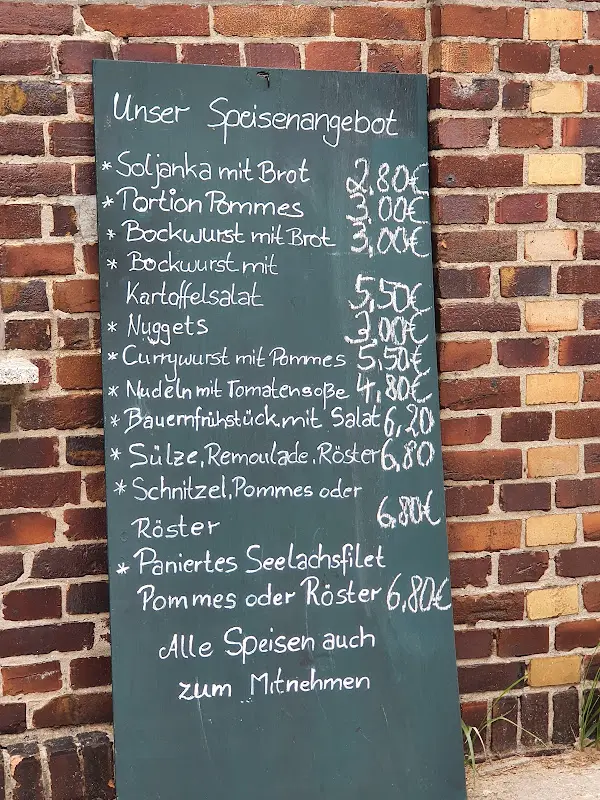 Unser Speisenangebot
* Soljanka mit Brot 2,80€
* Portion Pommes 3,00€
* Bockwurst mit Brot 3,00€
* Bockwurst mit
Kartoffelsalat 5,50€
* Nuggets 3,00€
* Currywurst mit Pommes 5,50€
* Nudeln mit Tomatensoße 4,80€
* Bauernfrühstück mit Salat 6,20
* Sülze, Remoulade, Röster 6,80
* Schnitzel, Pommes oder
Röster 6,80€
* Paniertes Seelachsfilet
Pommes oder Röster 6,80€
Alle Speisen auch
zum Mitnehmen